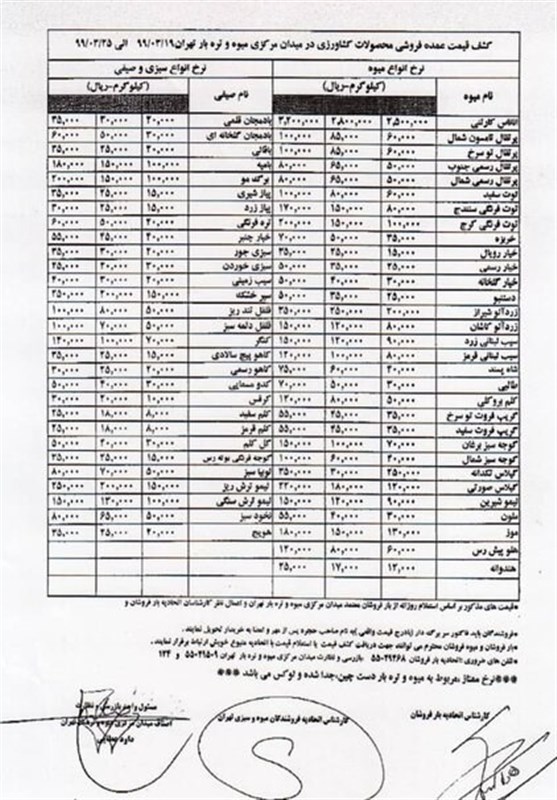 کشف قیمت عمده فروشی محصولات کشاورزی در میدان مرکزی میوه و تره بار تهران ۹۹/۰۳/۱۹ الی ۹۹/۰۳/۲۵
نرخ انواع میوه نرخ انواع سبزی و صیفی
نام میوه (کیلوگرم-ریال) نام صیفی (کیلوگرم-ریال)
آناناس کارتنی ۲,۵۰۰,۰۰۰ ۲,۸۰۰,۰۰۰ ۳,۲۰۰,۰۰۰ بادمجان قلمی ۲۰,۰۰۰ ۳۰,۰۰۰ ۳۵,۰۰۰
پرتقال تامسون شمال ۶۰,۰۰۰ ۸۵,۰۰۰ ۱۰۰,۰۰۰ بادمجان گلخانه ای ۳۰,۰۰۰ ۵۰,۰۰۰ ۶۰,۰۰۰
پرتقال تو سرخ ۶۰,۰۰۰ ۸۵,۰۰۰ ۱۰۰,۰۰۰ باقالی ۲۰,۰۰۰ ۲۵,۰۰۰ ۳۵,۰۰۰
پرتقال رسمی جنوب ۵۰,۰۰۰ ۶۵,۰۰۰ ۸۰,۰۰۰ بامیه ۱۰۰,۰۰۰ ۱۵۰,۰۰۰ ۱۸۰,۰۰۰
پرتقال رسمی شمال ۵۰,۰۰۰ ۶۵,۰۰۰ ۸۰,۰۰۰ برگه مو ۱۰۰,۰۰۰ ۱۵۰,۰۰۰ ۲۰۰,۰۰۰
توت سفید ۶۰,۰۰۰ ۸۰,۰۰۰ ۱۰۰,۰۰۰ پیاز شیری ۱۵,۰۰۰ ۲۵,۰۰۰ ۳۵,۰۰۰
توت فرنگی سنندج ۸۰,۰۰۰ ۱۵۰,۰۰۰ ۱۷۰,۰۰۰ پیاز زرد ۱۵,۰۰۰ ۲۵,۰۰۰ ۳۰,۰۰۰
توت فرنگی کرج ۱۰۰,۰۰۰ ۱۵۰,۰۰۰ ۲۰۰,۰۰۰ تره فرنگی ۲۰,۰۰۰ ۵۰,۰۰۰ ۶۰,۰۰۰
خربزه ۳۵,۰۰۰ ۵۰,۰۰۰ ۷۰,۰۰۰ خیار چنبر ۲۰,۰۰۰ ۲۵,۰۰۰ ۵۵,۰۰۰
خیار رویال ۱۵,۰۰۰ ۲۵,۰۰۰ ۳۵,۰۰۰ سبزی جور ۲۰,۰۰۰ ۳۰,۰۰۰ ۳۵,۰۰۰
خیار رسمی ۲۵,۰۰۰ ۳۵,۰۰۰ ۵۰,۰۰۰ سبزی خوردن ۲۰,۰۰۰ ۳۰,۰۰۰ ۲۵,۰۰۰
خیار گلخانه ۳۰,۰۰۰ ۴۰,۰۰۰ ۵۰,۰۰۰ سیب زمینی ۲۰,۰۰۰ ۳۰,۰۰۰ ۳۰,۰۰۰
دستنبو ۲۵,۰۰۰ ۳۵,۰۰۰ ۵۰,۰۰۰ سیر خشکه ۱۵۰,۰۰۰ ۲۰۰,۰۰۰ ۲۵۰,۰۰۰
زردآلو شیراز ۲۰۰,۰۰۰ ۲۵۰,۰۰۰ ۳۵۰,۰۰۰ فلفل تند ریز ۵۰,۰۰۰ ۸۰,۰۰۰ ۱۰۰,۰۰۰
زردآلو کاشان ۸۰,۰۰۰ ۱۲۰,۰۰۰ ۱۵۰,۰۰۰ فلفل دلمه سبز ۵۰,۰۰۰ ۷۰,۰۰۰ ۱۰۰,۰۰۰
سیب لبنانی زرد ۹۰,۰۰۰ ۱۲۰,۰۰۰ ۱۵۰,۰۰۰ کنگر ۷۰,۰۰۰ ۱۰۰,۰۰۰ ۱۴۰,۰۰۰
سیب لبنانی قرمز ۸۰,۰۰۰ ۱۰۰,۰۰۰ ۱۲۰,۰۰۰ کاهو پیچ سالادی ۱۵,۰۰۰ ۲۵,۰۰۰ ۳۵,۰۰۰
شاه پسند ۴۰,۰۰۰ ۶۰,۰۰۰ ۷۵,۰۰۰ کاهو رسمی ۲۰,۰۰۰ ۲۵,۰۰۰ ۳۰,۰۰۰
طالبی ۳۰,۰۰۰ ۵۰,۰۰۰ ۷۰,۰۰۰ کدو مسمایی ۳۰,۰۰۰ ۴۰,۰۰۰ ۵۰,۰۰۰
کلم بروکلی ۵۰,۰۰۰ ۸۰,۰۰۰ ۱۲۰,۰۰۰ کرفس ۱۰,۰۰۰ ۲۰,۰۰۰ ۳۰,۰۰۰
گریپ فروت تو سرخ ۳۵,۰۰۰ ۴۵,۰۰۰ ۵۵,۰۰۰ کلم سفید ۸,۰۰۰ ۱۸,۰۰۰ ۲۵,۰۰۰
گریپ فروت سفید ۳۵,۰۰۰ ۴۵,۰۰۰ ۵۵,۰۰۰ کلم قرمز ۸,۰۰۰ ۱۸,۰۰۰ ۲۵,۰۰۰
گوجه سبز برغان ۷۰,۰۰۰ ۱۰۰,۰۰۰ ۱۵۰,۰۰۰ گل کلم ۳۰,۰۰۰ ۴۰,۰۰۰ ۵۰,۰۰۰
گوجه سبز شمال ۴۰,۰۰۰ ۶۰,۰۰۰ ۱۰۰,۰۰۰ گوجه فرنگی بوته رس ۱۵,۰۰۰ ۲۵,۰۰۰ ۳۵,۰۰۰
گیلاس تکدانه ۲۵۰,۰۰۰ ۳۰۰,۰۰۰ ۳۵۰,۰۰۰ لوبیا سبز ۵۰,۰۰۰ ۷۰,۰۰۰ ۸۰,۰۰۰
گیلاس صورتی ۱۲۰,۰۰۰ ۱۸۰,۰۰۰ ۲۲۰,۰۰۰ لیمو ترش ریز ۱۵۰,۰۰۰ ۲۰۰,۰۰۰ ۲۵۰,۰۰۰
لیمو شیرین ۹۰,۰۰۰ ۱۲۰,۰۰۰ ۱۵۰,۰۰۰ لیمو ترش سنگی ۱۰۰,۰۰۰ ۱۳۰,۰۰۰ ۱۵۰,۰۰۰
ملون ۳۰,۰۰۰ ۴۰,۰۰۰ ۵۵,۰۰۰ نخود سبز ۵۰,۰۰۰ ۶۵,۰۰۰ ۸۰,۰۰۰
موز ۱۳۰,۰۰۰ ۱۵۰,۰۰۰ ۱۸۰,۰۰۰ هویج ۲۰,۰۰۰ ۲۵,۰۰۰ ۳۵,۰۰۰
هلو پیش رس ۶۰,۰۰۰ ۸۰,۰۰۰ ۱۲۰,۰۰۰
هندوانه ۱۲,۰۰۰ ۱۷,۰۰۰ ۲۵,۰۰۰
*قیمت های مذکور بر اساس استعلام روزانه از بار فروشان معتمد میدان مرکزی میوه و تره بار تهران و اعمال نظر کارشناسان اتحادیه بار فروشان و
*فروشندگان باید فاکتور سر برگه دار (بادرج قیمت واقعی) به نام صاحب حجره پس از مهر و امضا به خریدار تحویل نمایند.
*بار فروشان و میوه فروشان محترم می توانند جهت دریافت کشف قیمت یا استعلام قیمت با اتحادیه متبوع خویش ارتباط برقرار نمایند.
*تلفن های ضروری: اتحادیه بار فروشان ۵۵۰۴۹۴۶۸ بازرسی و نظارت میدان مرکزی میوه و تره بار تهران ۵۵۰۴۱۵۰۹ و ۱۲۴
***نرخ ممتاز مربوط به میوه و تره بار دست چین،جدا شده و لوکس می باشد ***
کارشناس اتحادیه بار فروشان
کارشناس اتحادیه فروشندگان میوه و سبزی تهران
مسئول واحد بازرسی و نظارت